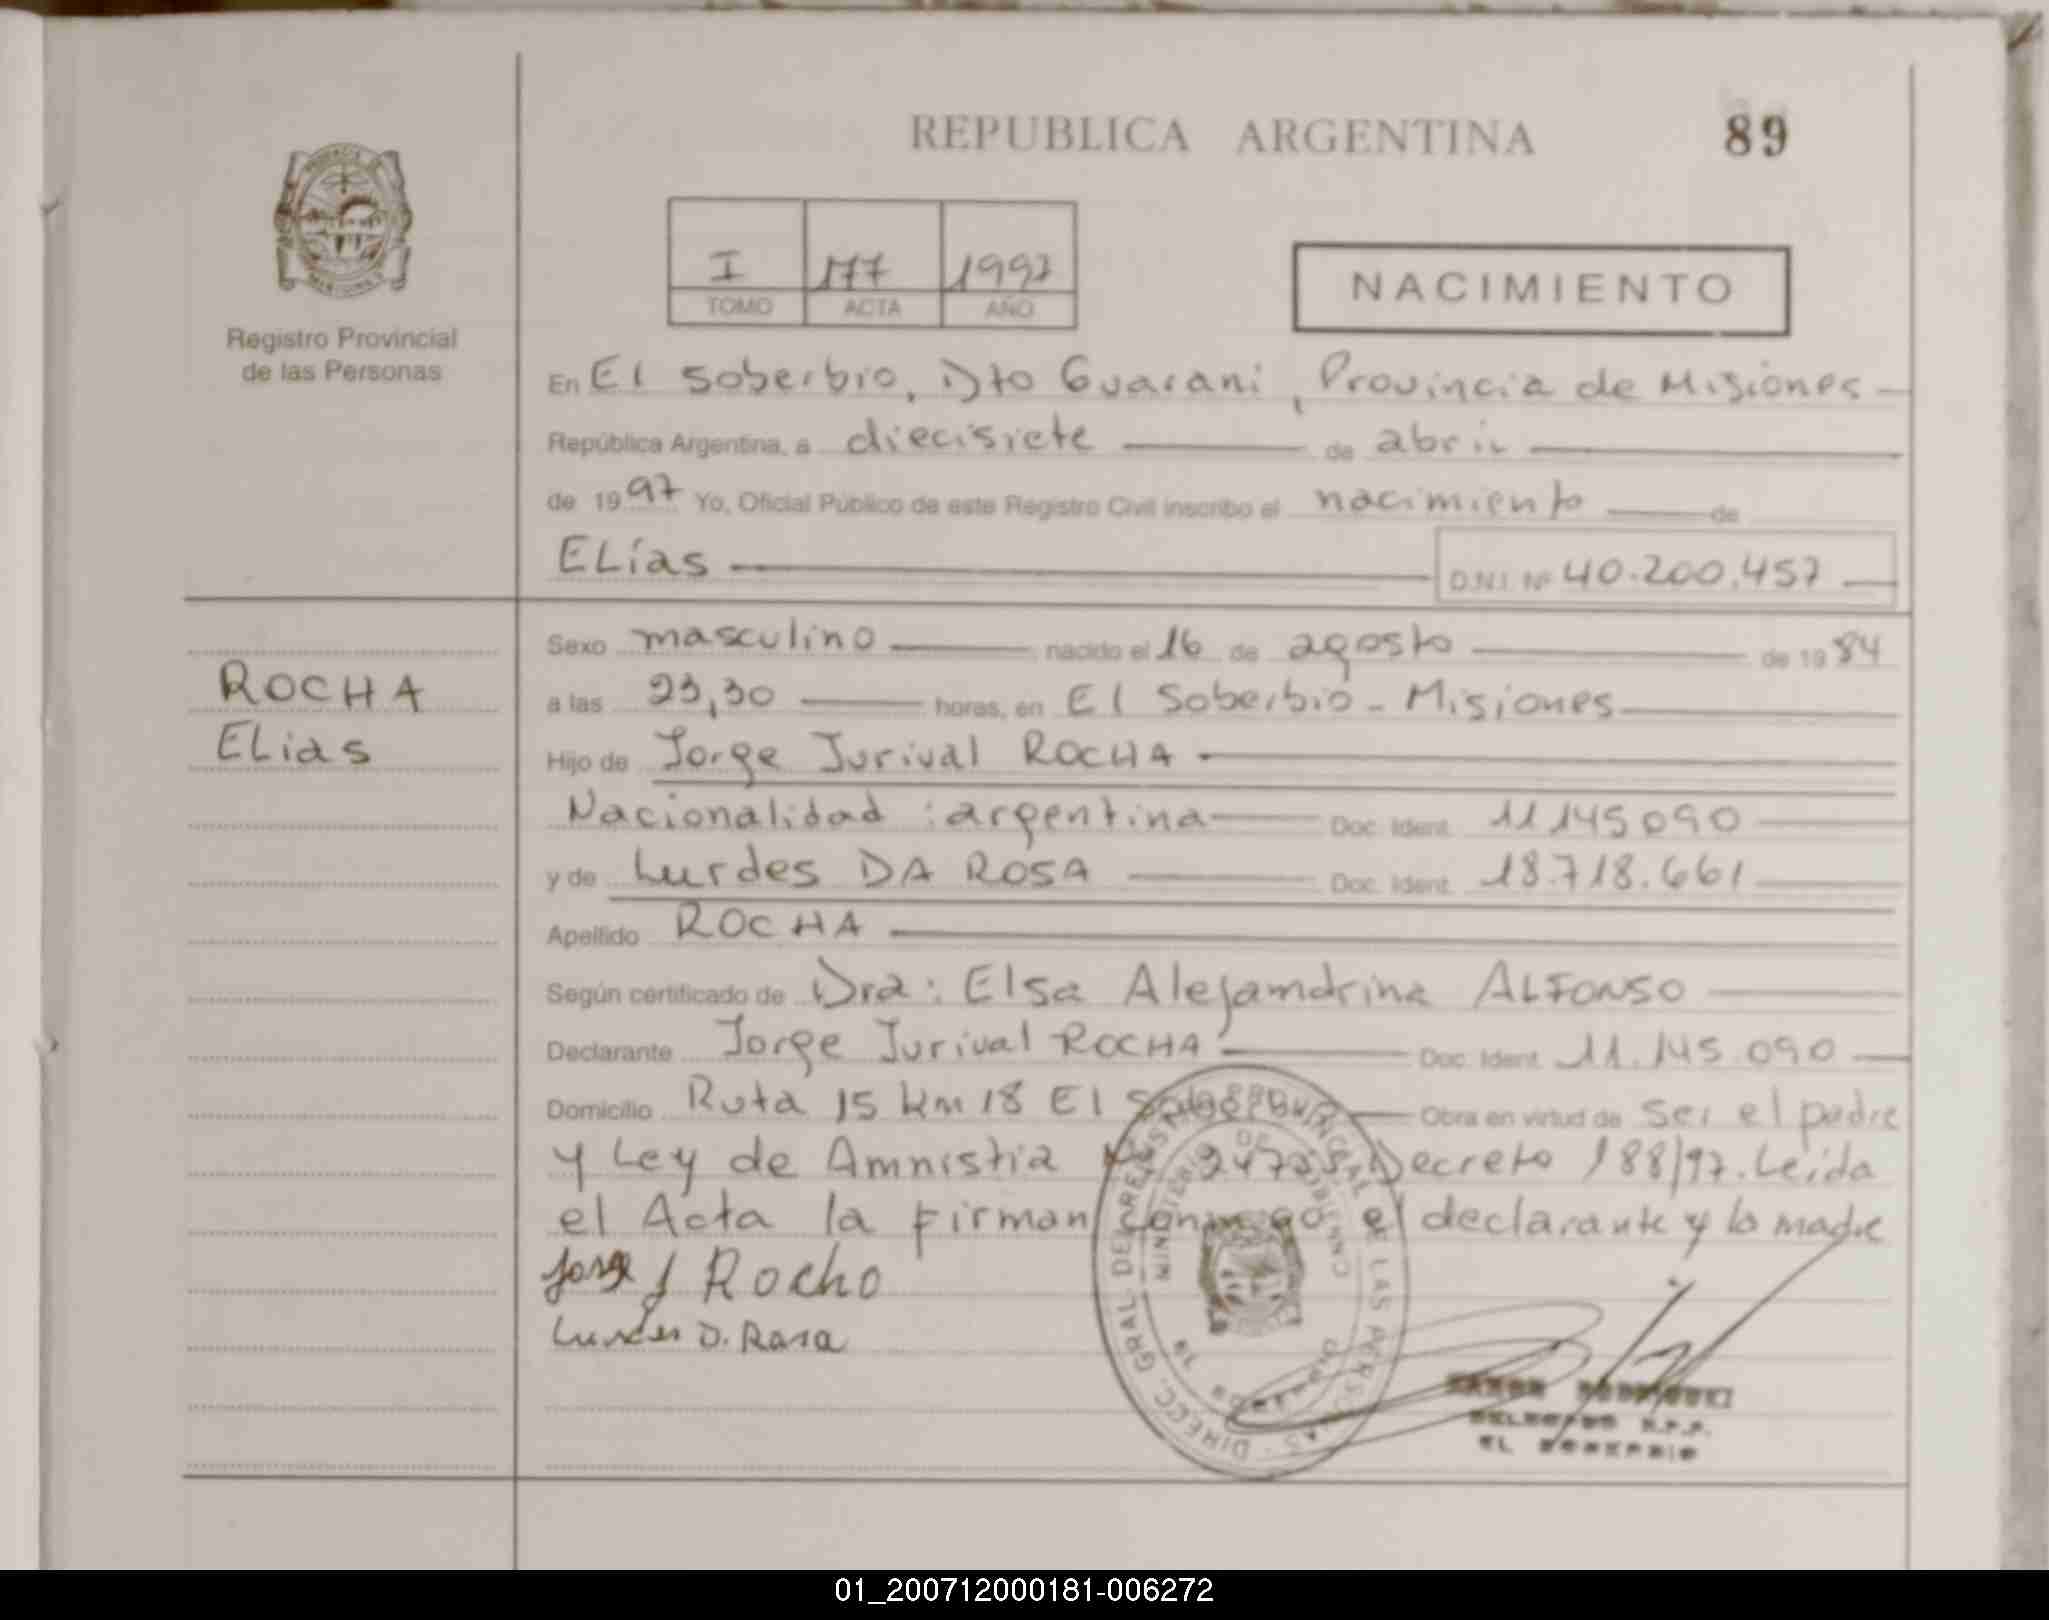 REPUBLICA ARGENTINA
89
Registro Provincial
de las Personas
I 177 1997
TOMO ACTA AÑO
NACIMIENTO
En El Soberbio, Dto Guarani, Provincia de Misiones
República Argentina, a diecisiete de abril
de 1997 Yo, Oficial Público de este Registro Civil inscribo el nacimiento de
ELías D.N.I. Nº 40.200.457
Sexo masculino nacido el 16 de agosto de 1984
ROCHA
ELias
a las 23,30 horas, en El Soberbio - Misiones
Hijo de Jorge Jurival ROCHA
Nacionalidad : argentina Doc. Ident. 11.145.090
y de Lurdes DA ROSA Doc. Ident. 18.718.661
Apellido ROCHA
Según certificado de Dra: Elsa Alejamdrina ALFONSO
Declarante Jorge Jurival ROCHA Doc. Ident. 11.145.090
Domicilio Ruta 15 km 18 El Obra en virtud de ser el padre
y Ley de Amnistia Decreto 188/97. Leída
el Acta la firman conmigo el declarante y la madre
Jorge J Rocho
Lurdes D. Rasa
DIRECC. GRAL. DEL REGISTRO PROVINCIAL DE LAS PERSONAS
MINISTERIO DE GOBIERNO
RAMON RODRIGUEZ
DELEGADO R.P.P.
EL SOBERBIO
01_200712000181-006272